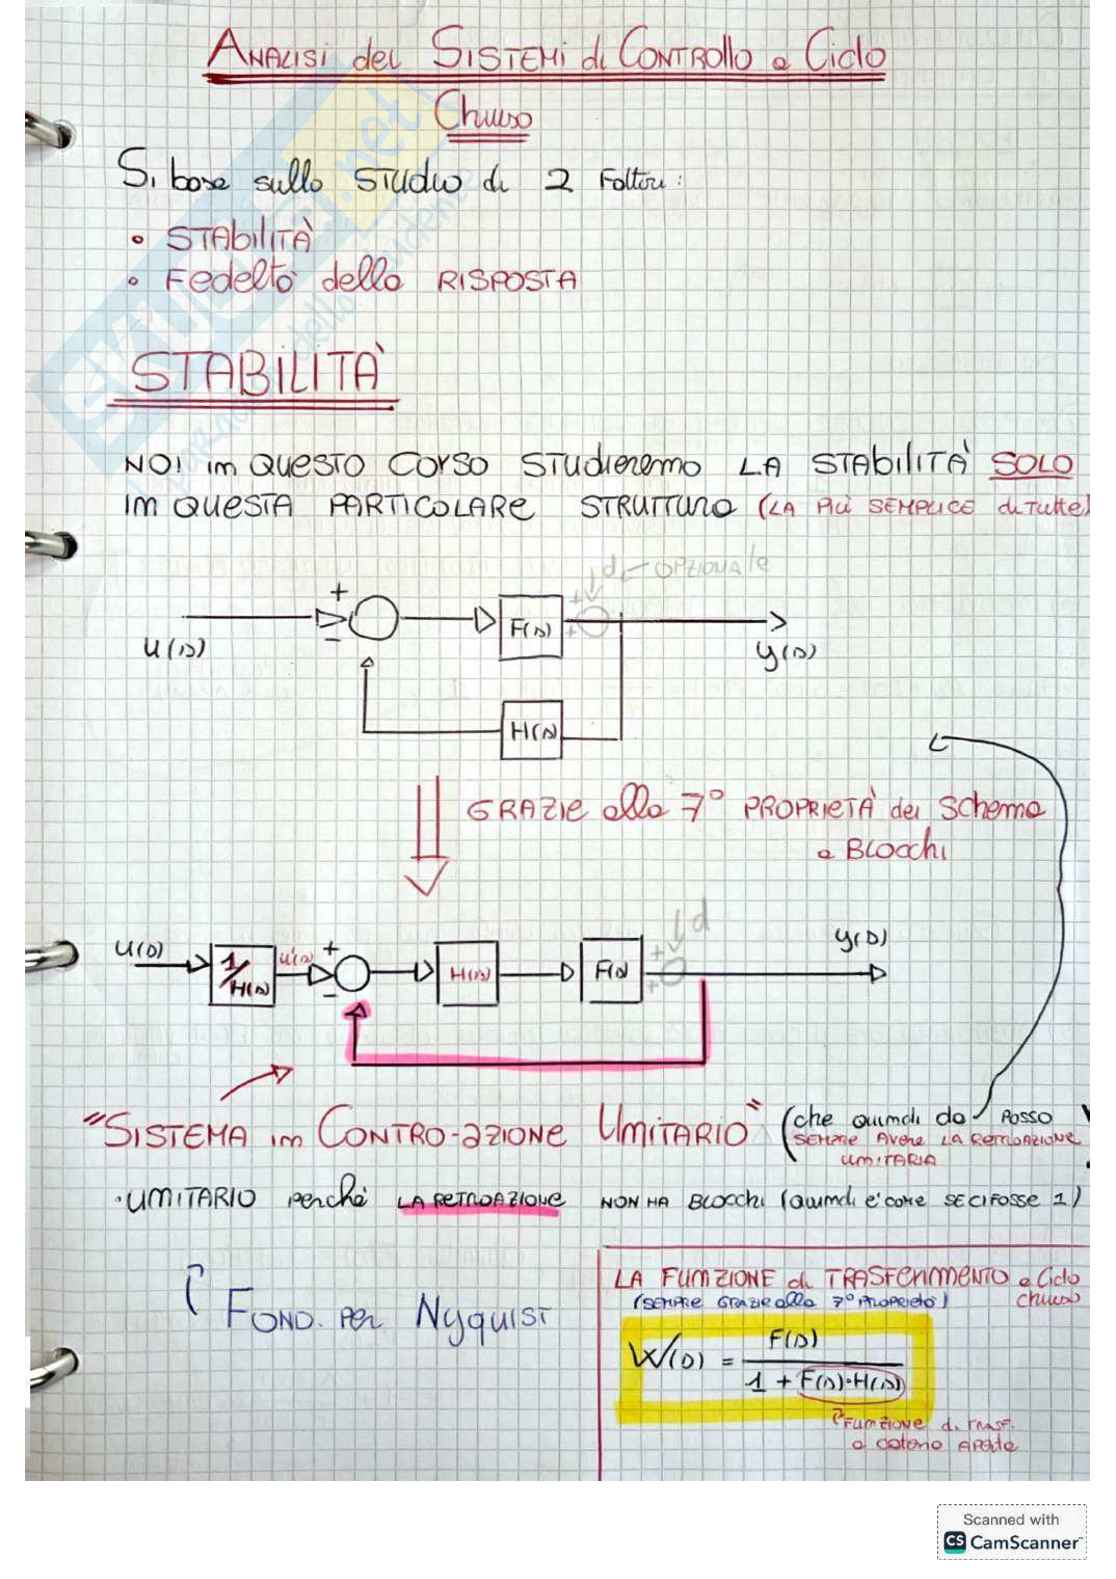 Analisi dei Sistemi di Controllo a Ciclo
Chiuso
Si basa sullo studio di 2 Fattori:
• STAbiliTÀ
• Fedeltà della RISPOSTA
STABiLiTÀ
NOI in QUESTO CORSO STUDIEREMO LA STAbiliTÀ SOLO
in QUESTA PARTICOLARE STRUTTURA (LA Più SEMPLICE di TUTTE)
d ← OPZIONALE
+
+
+
F(s)
u(s)
−
y(s)
H(s)
GRAZIE alla 7° PROPRIETÀ dei Schema
a BLOCCHI
d
u(s)
y(s)
1/H(s)
u'(s)
+
−
H(s)
F(s)
+
+
"SISTEMA in CONTRO-aZIONE UNITARIO" (che quindi da POSSO
SEMPRE AVERE LA RETROAZIONE
UNITARIA
• UNITARIO perché LA RETROAZIONE NON HA BLOCCHI (quindi è come SE CI FOSSE 1)
FOND. PER Nyquist
LA FUNZIONE di TRASFERIMENTO a Ciclo
(SEMPRE GRAZIE alla 7° PROPRIETÀ) chiuso
W(s) = F(s) / 1 + F(s)·H(s)
FUNZIONE di TRASF.
a catena APERTA
Scanned with
CS CamScanner